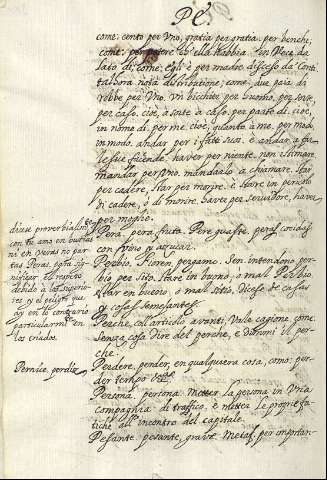 PE
come: cento per uno, gratia per gratia. per benche,
come: per potere ch'ella habbia. in Voce de
lato di, come, Egli è per madre disceso da Conti
talhora nota distributione; come: due paia di
robbe per uno, un bicchier per huomo, per sorte,
per caso, cioè, à sorte à caso, per parte di, cioè,
in nome di, per me, cioè, quanto à me, per modo,
in modo. andar per i fatti suoi. è andar à far
le sue facende. haver per niente, non estimare,
mandar per uno, mandarlo à chiamare. star
per cadere, star per morire, è stare in pericolo
di cadere, ò di morire. haver per servidore, haver
per meglio.
Pera, pera fruta. Pere guaste, peras cosidas
con vino y açucar.
Poggio. Floren pergamo. Sen intendono per
bio per sito, stare in buono, ò mal
star en bueno, ò mal sitio. Dicese de casas
y cosas semejantes.
Perche, coll'articolo avanti, Vale cagione, come:
Senza cosa dire del perche, è darmi il per
che.
Perdere, perder, en qualquiera cosa, como: per
der tempo
Persona, persona. Metter la persona in una
compagnia di traffico, è metter le proprie fa
tiche, all'incontro del capitale.
Pesante, pesante, grave. Metaf. per importan
dizese proverbialmte
con tu amo en burlas
ni en veras no par
tas Peras, para sig
nificar el respeto
debido à los superio
res y el peligro que
ay en lo contrario
particularmte en
los criados.
Pernice, perdiz